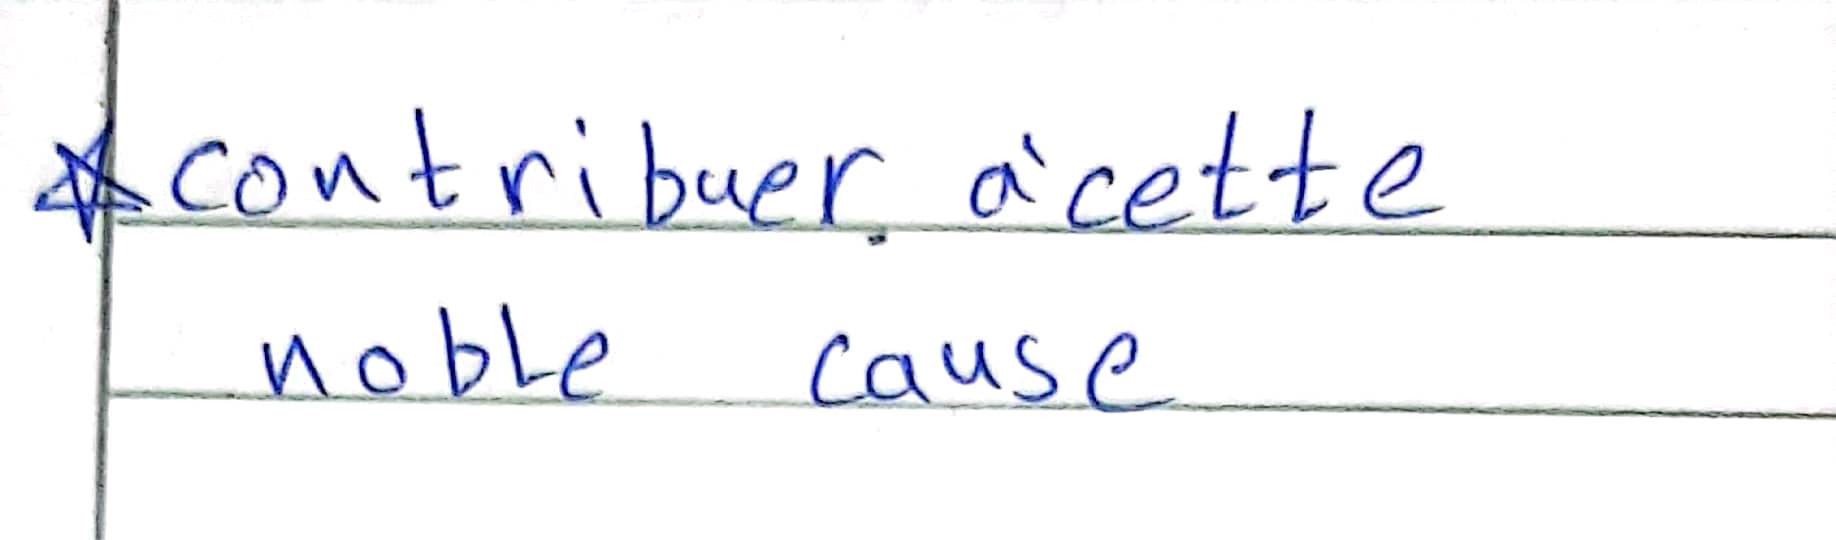 ☆ contribuer à cette
noble cause